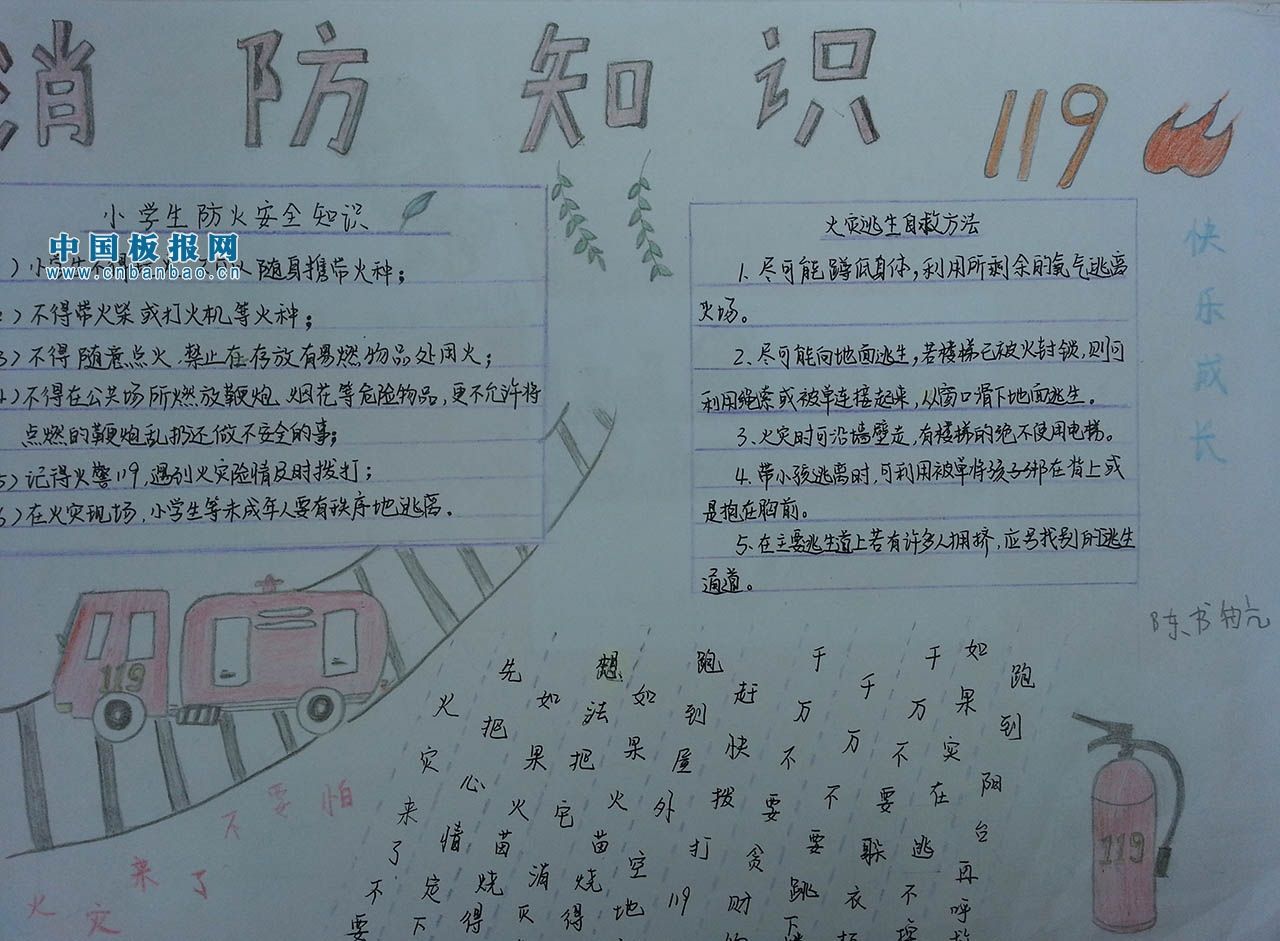 消 防 知 识
119
小学生防火安全知识
中国板报网
www.cnbanbao.cn
随身携带火种；
）不得带火柴或打火机等火种；
3）不得随意点火，禁止在存放有易燃物品处用火；
）不得在公共场所燃放鞭炮、烟花等危险物品，更不允许将
点燃的鞭炮乱扔还做不安全的事；
5）记得火警119，遇到火灾险情及时拨打；
6）在火灾现场，小学生等未成年人要有秩序地逃离。
火灾逃生自救方法
1. 尽可能蹲低身体，利用所剩余的氧气逃离
火场。
2. 尽可能向地面逃生，若楼梯已被火封锁，则可
利用绳索或被单连接起来，从窗口滑下地面逃生。
3. 火灾时可沿墙壁走，有楼梯的绝不使用电梯。
4. 带小孩逃离时，可利用被单将孩子绑在背上或
是抱在胸前。
5. 在主要逃生道上若有许多人拥挤，应另找别的逃生
通道。
快乐成长
陈书
119
火灾来了不要怕
火灾来了不要
先把心情定下
如果火苗烧得
想法把它消灭
如果火苗烧得
跑到屋外空地
赶快拨打119
千万不要贪财
千万不要跳下
千万不要躲衣
如果实在逃不
跑到阳台再呼
119